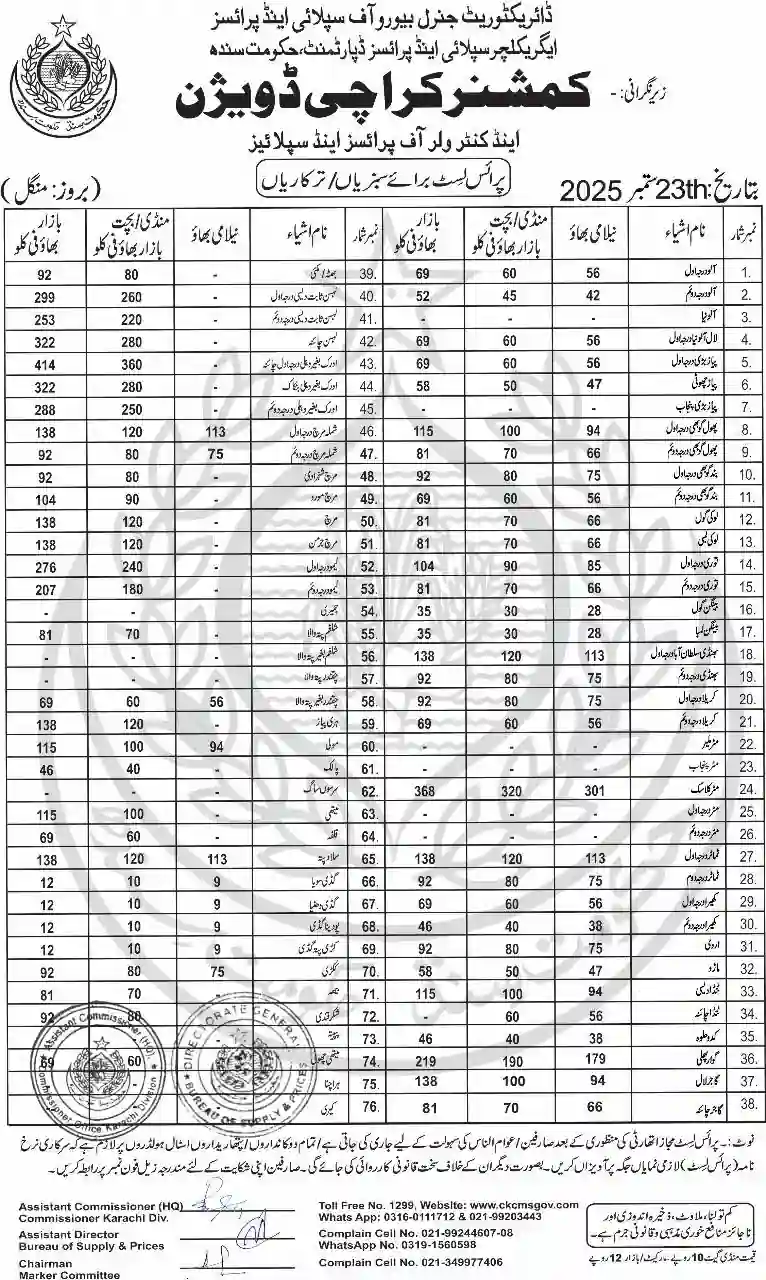 ڈائریکٹوریٹ جنرل بیورو آف سپلائی اینڈ پرائسز
ایگریکلچر سپلائی اینڈ پرائسز ڈپارٹمنٹ، حکومت سندھ
زیر نگرانی: -
کمشنر کراچی ڈویژن
اینڈ کنٹرولر آف پرائسز اینڈ سپلائیز
پرائس لسٹ برائے سبزیاں / ترکاریاں
بتاریخ: 23th ستمبر 2025
(بروز: منگل)
نمبر شمار نام اشیاء نیلامی بھاؤ منڈی/بچت بازار بھاؤ فی کلو بازار بھاؤ فی کلو نمبر شمار نام اشیاء نیلامی بھاؤ منڈی/بچت بازار بھاؤ فی کلو بازار بھاؤ فی کلو
1. آلو درجہ اول 56 60 69 39. بھٹہ/مکئی - 80 92
2. آلو درجہ دوئم 42 45 52 40. لہسن ثابت دیسی درجہ اول - 260 299
3. آلو نیا - - - 41. لہسن ثابت دیسی درجہ دوئم - 220 253
4. لال آلو نیا درجہ اول 56 60 69 42. لہسن چائنہ - 280 322
5. پیاز بڑی درجہ اول 56 60 69 43. ادرک بغیر دھلی درجہ اول چائنہ - 360 414
6. پیاز چھوٹی 47 50 58 44. ادرک بغیر دھلی - 280 322
7. پیاز بڑی پنجاب - - - 45. ادرک بغیر دھلی درجہ دوئم 250 288
8. پھول گوبھی درجہ اول 94 100 115 46. شملہ مرچ درجہ اول 113 120 138
9. پھول گوبھی درجہ دوئم 66 70 81 47. شملہ مرچ درجہ دوئم 75 80 92
10. بند گوبھی درجہ اول 75 80 92 48. مرچ - 80 92
11. بند گوبھی درجہ دوئم 56 60 69 49. مرچ - 90 104
12. لوکی گول 66 70 81 50. مرچ - 120 138
13. لوکی لمبی 66 70 81 51. مرچ - 120 138
14. توری درجہ اول 85 90 104 52. لیمو درجہ اول - 240 276
15. توری درجہ دوئم 66 70 81 53. لیمو درجہ دوئم - 180 207
16. بینگن گول 28 30 35 54. - - -
17. بینگن لمبا 28 30 35 55. شلغم پتہ والا - 70 81
18. بھنڈی سلطان آباد درجہ اول 113 120 138 56. شلغم بغیر پتہ والا - - -
19. بھنڈی درجہ دوئم 75 80 92 57. چقندر پتہ والا - - -
20. کریلا درجہ اول 75 80 92 58. چقندر بغیر پتہ والا 56 60 69
21. کریلا درجہ دوئم 56 60 69 59. ہری پیاز - 120 138
22. مٹر - - - 60. مولی 94 100 115
23. مٹر پنجاب - - - 61. پالک - 40 46
24. مٹر کلاسک 301 320 368 62. سرسوں ساگ - - -
25. مٹر درجہ اول - - - 63. میتھی - 100 115
26. مٹر درجہ دوئم - - - 64. قلفہ - 60 69
27. ٹماٹر درجہ اول 113 120 138 65. سلاد پتہ 113 120 138
28. ٹماٹر درجہ دوم 75 80 92 66. گڈی سویا 9 10 12
29. کھیرا درجہ اول 56 60 69 67. گڈی دھنیا 9 10 12
30. کھیرا درجہ دوئم 38 40 46 68. پودینا گڈی 9 10 12
31. اروی 75 80 92 69. کڑی پتہ گڈی 9 10 12
32. 47 50 58 70. ککڑی 75 80 92
33. ٹنڈا دیسی 94 100 115 71. - 70 81
34. ٹنڈا چائنہ 56 60 - 72. شکرقندی 80 92
35. کدو حلوہ 38 40 46 73. پپیتہ
36. گوار پھلی 179 190 219 74. میتھی پھول 60 69
37. گاجر لال 94 100 138 75.
38. گاجر چائنہ 66 70 81 76. کیری -
Assistant Commissioner (HQ) Commissioner Office Karachi Division
DIRECTORATE GENERAL BUREAU OF SUPPLY & PRICES
نوٹ: - پرائس لسٹ مجاز اتھارٹی کی منظوری کے بعد صارفین / عوام الناس کی سہولت کے لیے جاری کی جاتی ہے / تمام دوکانداروں / پتھاریداروں اسٹال ہولڈروں پر لازم ہے کہ سرکاری نرخ
نامہ (پرائس لسٹ) لازمی نمایاں جگہ پر آویزاں کریں۔ بصورت دیگر ان کے خلاف سخت قانونی کارروائی کی جائے گی۔ صارفین اپنی شکایت کے لئے مندرجہ ذیل فون نمبر پر رابطہ کریں۔
Assistant Commissioner (HQ)
Commissioner Karachi Div.
Toll Free No. 1299, Website: www.ckcmsgov.com
Whats App: 0316-0111712 & 021-99203443
Assistant Director
Bureau of Supply & Prices
Complain Cell No. 021-99244607-08
WhatsApp No. 0319-1560598
Chairman
Marker Committee
Complain Cell No. 021-349977406
کم تولنا، ملاوٹ، ذخیرہ اندوزی اور
ناجائز منافع خوری مذہبی و قانونی جرم ہے۔
قیمت منڈی گیٹ 10 روپے - مارکیٹ / بازار 12 روپے